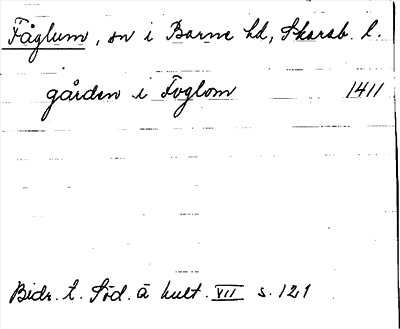 Fåglum, sn i Barne hd, Skarab. l.
gården i Foglom 1411
Bidr. t. Söd. ä kult. VII s. 121